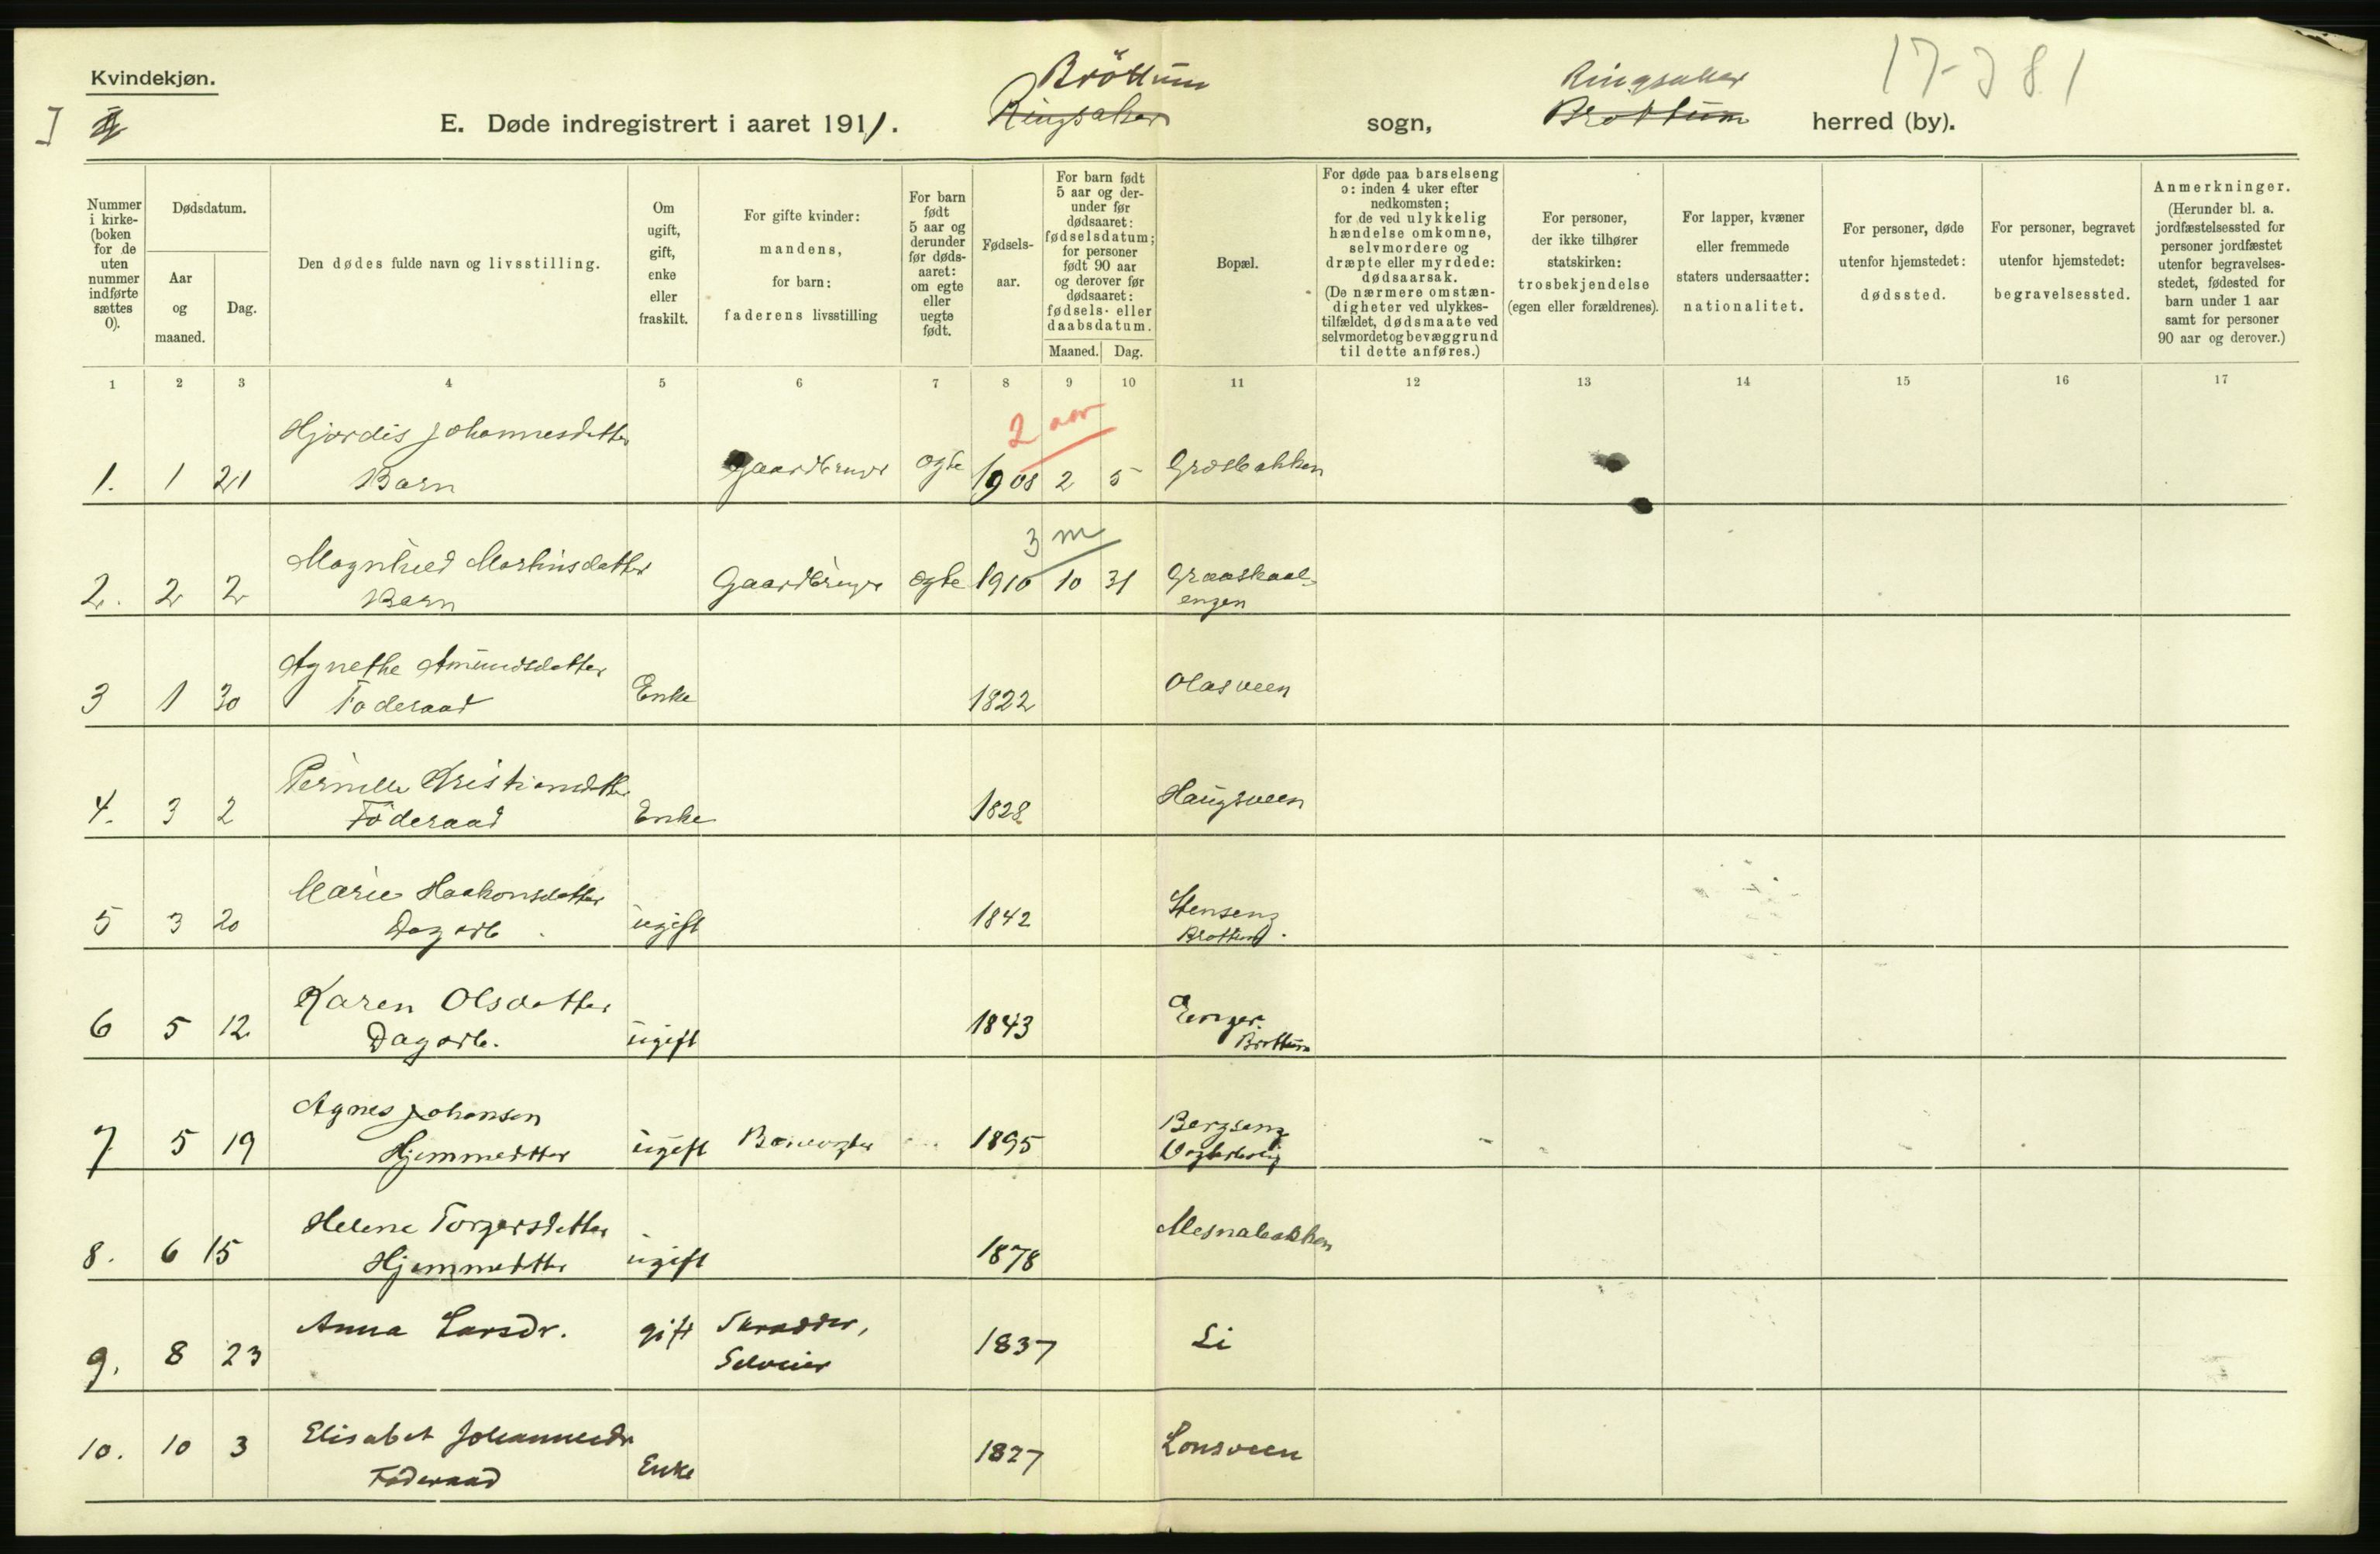 Kvindekjøn.
E. Døde indregistrert i aaret 1911. Bröttum Ringsaker sogn, Ringsaker Brottum herred (by).
17-381
Nummer i kirke- (boken for de uten nummer indførte sættes 0).
Dødsdatum.
Aar og maaned.
Dag.
Den dødes fulde navn og livsstilling.
Om ugift, gift, enke eller fraskilt.
For gifte kvinder: mandens, for barn: faderens livsstilling
For barn født 5 aar og derunder før døds- aaret: om egte eller uegte født.
Fødsels- aar.
For barn født 5 aar og der- under før dødsaaret: fødselsdatum; for personer født 90 aar og derover før dødsaaret: fødsels- eller daabsdatum.
Maaned. Dag.
Bopæl.
For døde paa barselseng ɔ: inden 4 uker efter nedkomsten; for de ved ulykkelig hændelse omkomne, selvmordere og dræpte eller myrdede: dødsaarsak. (De nærmere omstæn- digheter ved ulykkes- tilfældet, dødsmaate ved selvmordet og bevæggrund til dette anføres.)
For personer, der ikke tilhører statskirken: trosbekjendelse (egen eller forældrenes).
For lapper, kvæner eller fremmede staters undersaatter: nationalitet.
For personer, døde utenfor hjemstedet: dødssted.
For personer, begravet utenfor hjemstedet: begravelsessted.
Anmerkninger. (Herunder bl. a. jordfæstelsessted for personer jordfæstet utenfor begravelses- stedet, fødested for barn under 1 aar samt for personer 90 aar og derover.)
1 2 3 4 5 6 7 8 9 10 11 12 13 14 15 16 17
2 aar
Hjørdis Johannesdatter
1. 1 21 Barn Gaardbruger egte 1908 2 5 Græsbakken
3 m
Magnhild Martinsdatter
2. 2 2 Barn Gaardbruger egte 1910 10 31 Graaskaal-
engen
Agnethe Amundsdatter
3 1 30 Föderaad Enke 1822 Olasveen
Pernille Kristiansdtter
4. 3 2 Föderaad Enke 1828 Haugsveen
Marie Haakonsdatter
5 3 20 Dagarb. ugift 1842 Stenseng
Brottum.
Karen Olsdatter
6 5 12 Dagarb. ugift 1843 Enger.
Brottum
Agnes Johansen
7 5 19 Hjemmedtter ugift Banevogter 1895 Bergseng
Vogterbolig
Helene Torgersdatter
8. 6 15 Hjemmedtter ugift 1878 Mesnabakken
9. 8 23 Anna Larsdr. gift Skrædder, 1837 Li
Selveier
Elisabet Johannesdr
10. 10 3 Föderaad Enke 1827 Lonsveen